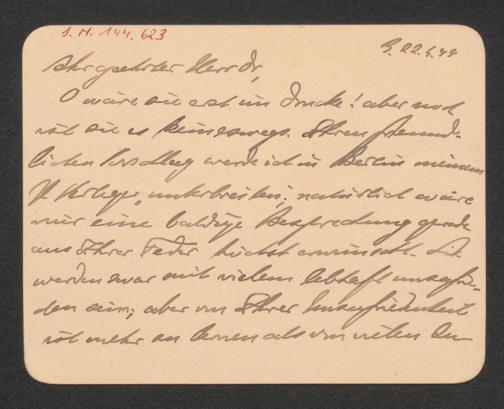 I. N. 144.623
B. 22.4.99
Sehr geehrter Herr Dr,
O wäre sie erst im Drucke! aber noch
ist sie es keineswegs. Ihren freund-
lichen Vorschlag werde ich in Berlin meinem
Verleger unterbreiten; natürlich wäre
mir eine baldige Besprechung gerade
aus Ihrer Feder höchst erwünscht. Sie
werden zwar mit vielem lebhaft unzufrie-
den sein; aber von Ihrer Unzufriedenheit
ist mehr zu lernen als von vielen